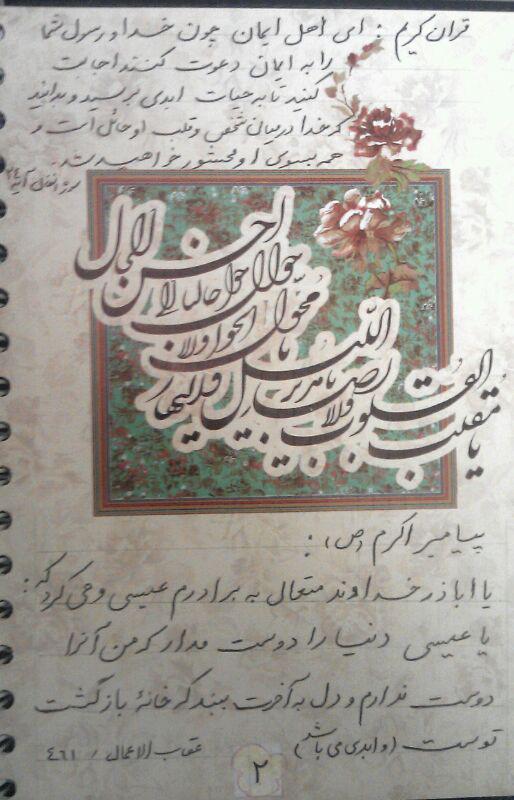 قرآن کریم : ای اهل ایمان چون خدا و رسول شما
را به ایمان دعوت کنند اجابت
کنند تا به حیات ابدی برسید و بدانید
که خدا در میان شخص و قلب او حائل است و
همه بسوی او محشور خواهید شد.
سوره انفال آیه ۲۴
یا مقلب القلوب و الابصار
یا مدبر اللیل و النهار
یا محول الحول و الاحوال
حول حالنا الی احسن الحال
پیامبر اکرم (ص) :
یا اباذر خداوند متعال به برادرم عیسی وحی کرد که :
یا عیسی دنیا را دوست مدار که من آنرا
دوست ندارم و دل به آخرت ببند که خانهٔ بازگشت
توست (و ابدی می باشد)
عقاب الاعمال / ۴۶۱
۲